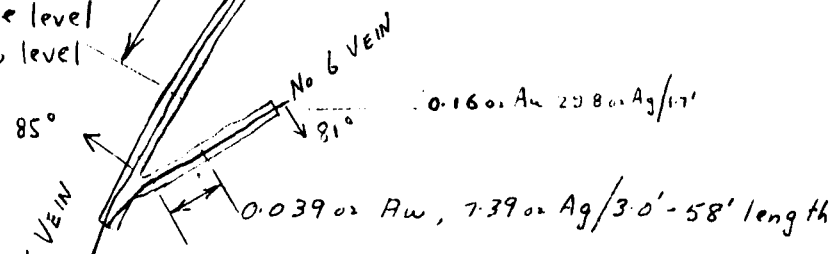 e level
level
No 6 VEIN
85°
81°
0.16 oz Au 29.8 oz Ag/1.7'
VEIN
0.039 oz Au, 7.39 oz Ag/3.0' - 58' length